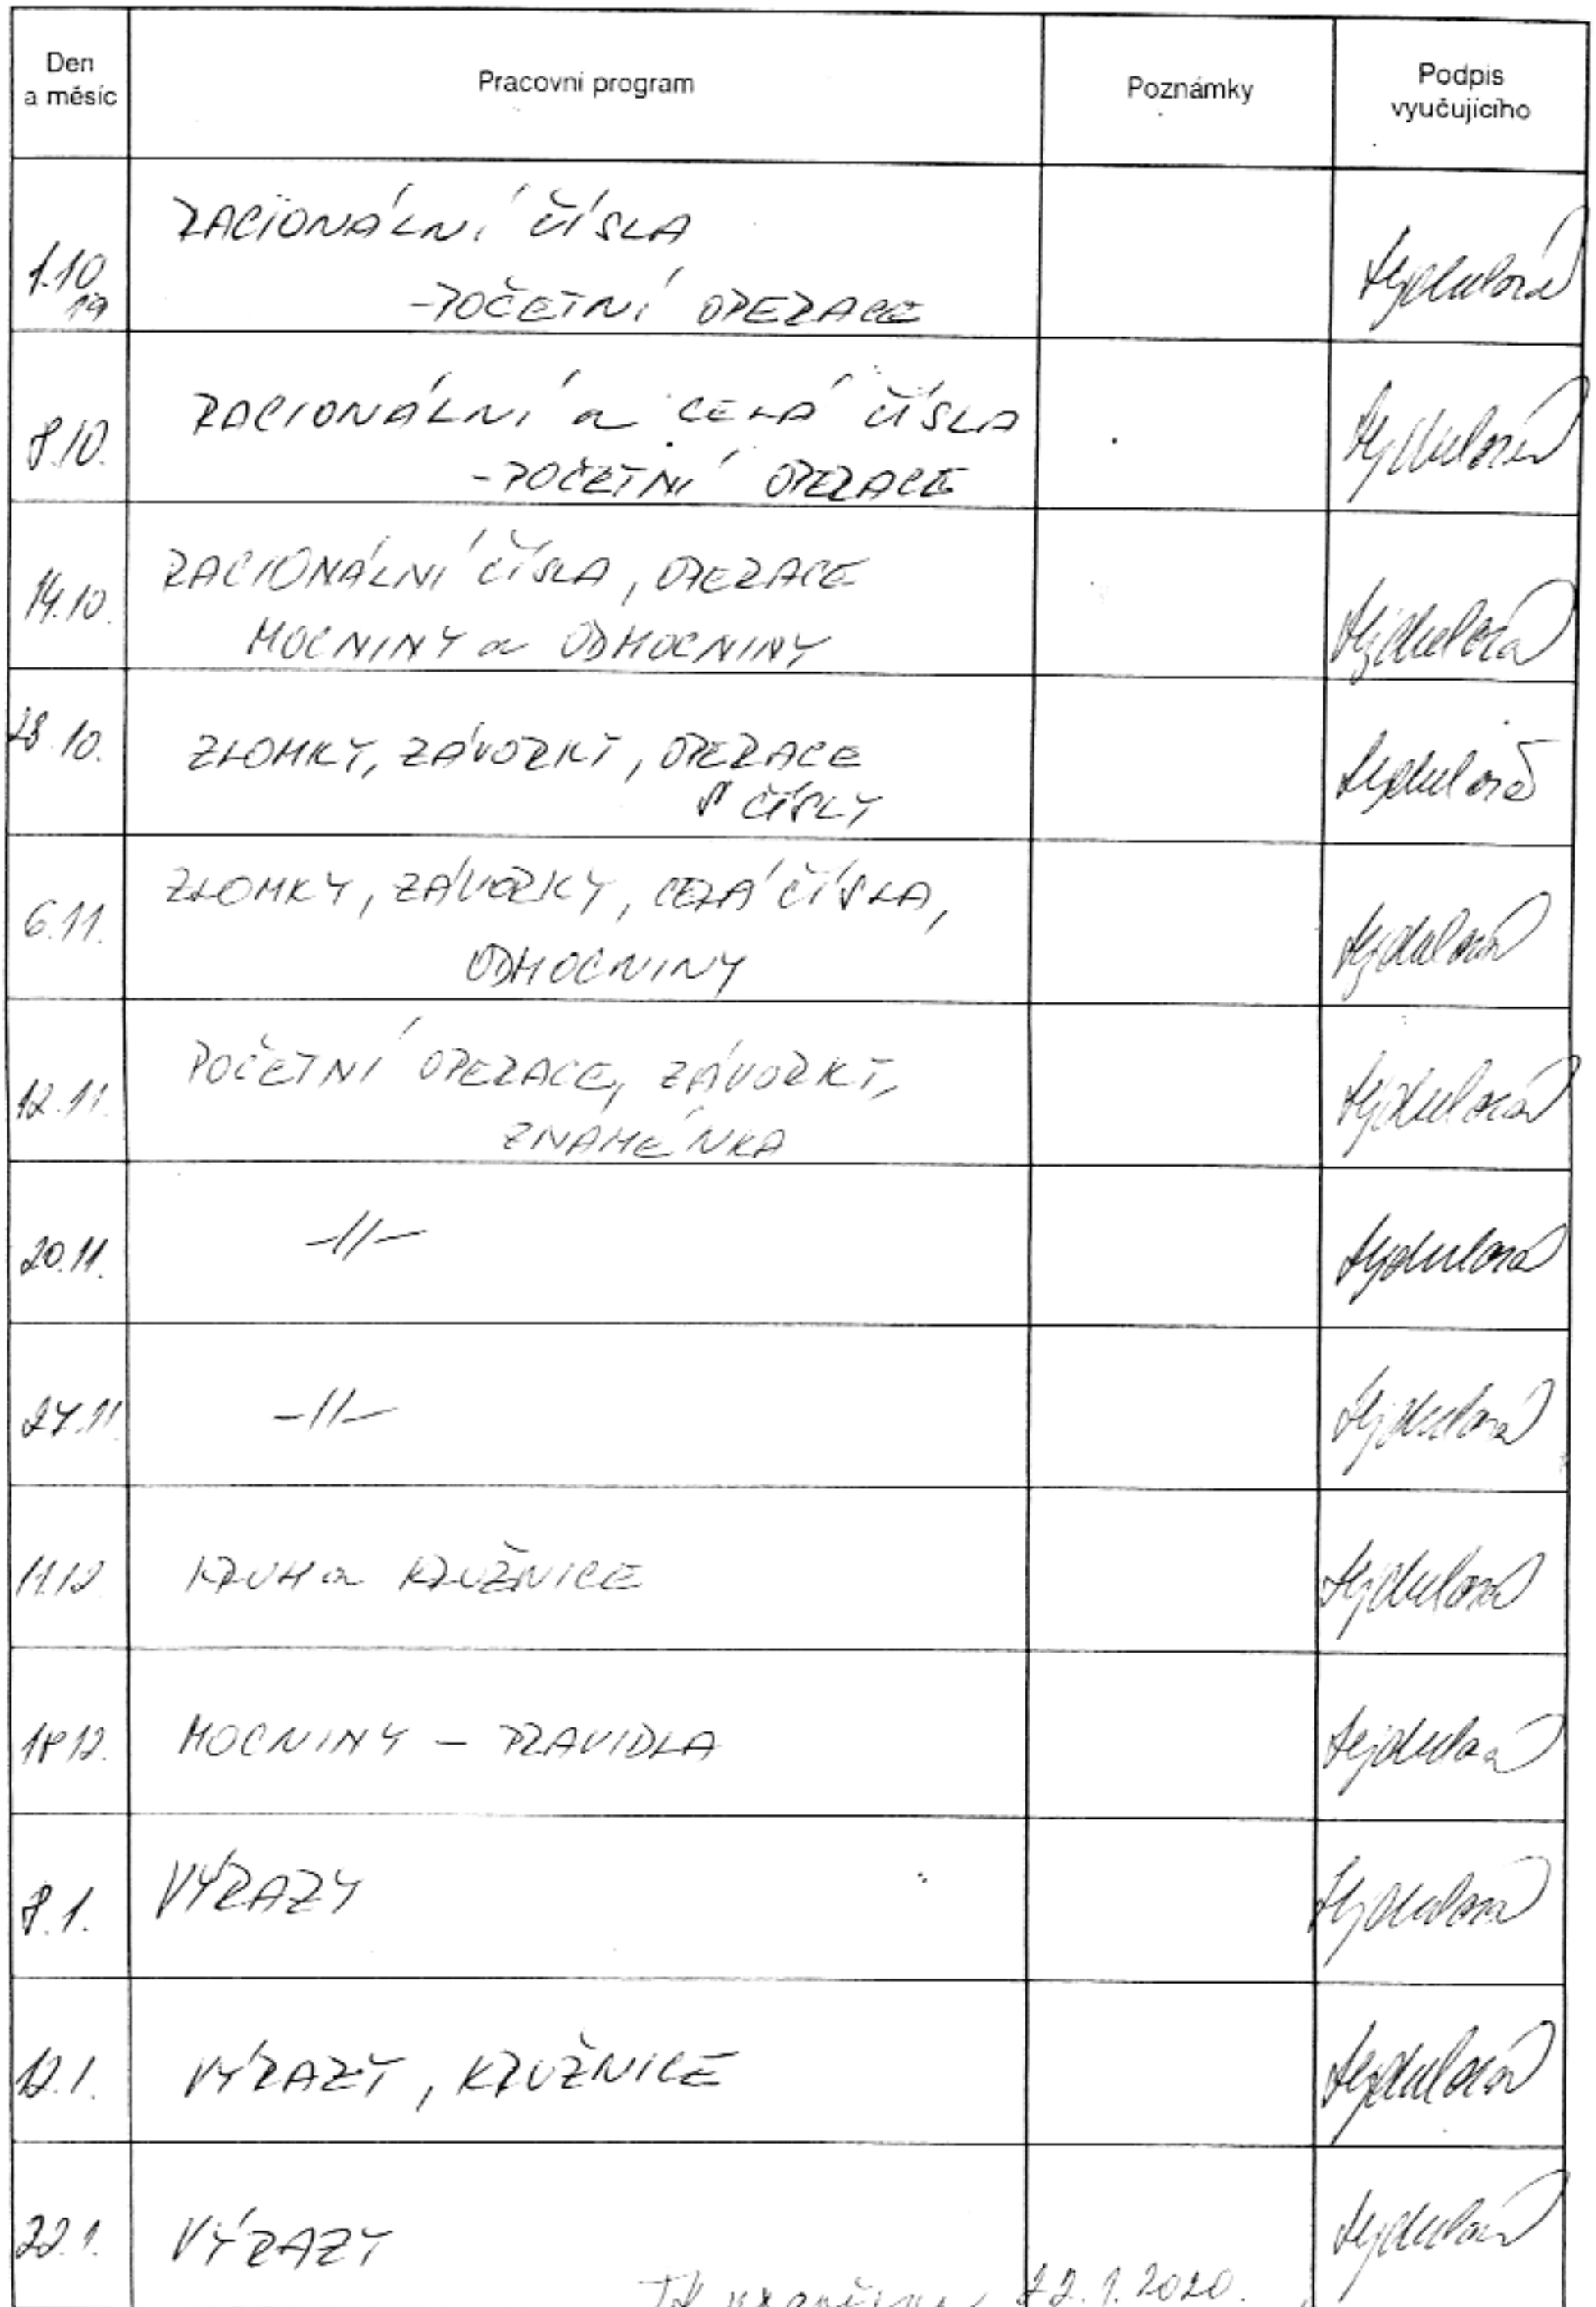 Den
a měsíc
Pracovní program
Poznámky
Podpis
vyučujícího
1.10
19
RACIONÁLNÍ ČÍSLA
-POČETNÍ OPERACE
8.10.
RACIONÁLNÍ a CELÁ ČÍSLA
-POČETNÍ OPERACE
14.10.
RACIONÁLNÍ ČÍSLA, OPERACE
MOCNINY a ODMOCNINY
28.10.
ZLOMKY, ZÁVORKY, OPERACE
S ČÍSLY
6.11.
ZLOMKY, ZÁVORKY, CELÁ ČÍSLA,
ODMOCNINY
12.11.
POČETNÍ OPERACE, ZÁVORKY,
ZNAMÉNKA
20.11.
-//-
27.11
-//-
11.12
KRUH a KRUŽNICE
18.12.
MOCNINY - PRAVIDLA
8.1.
VÝRAZY
12.1.
VÝRAZY, KRUŽNICE
22.1.
VÝRAZY
22.1.2020.